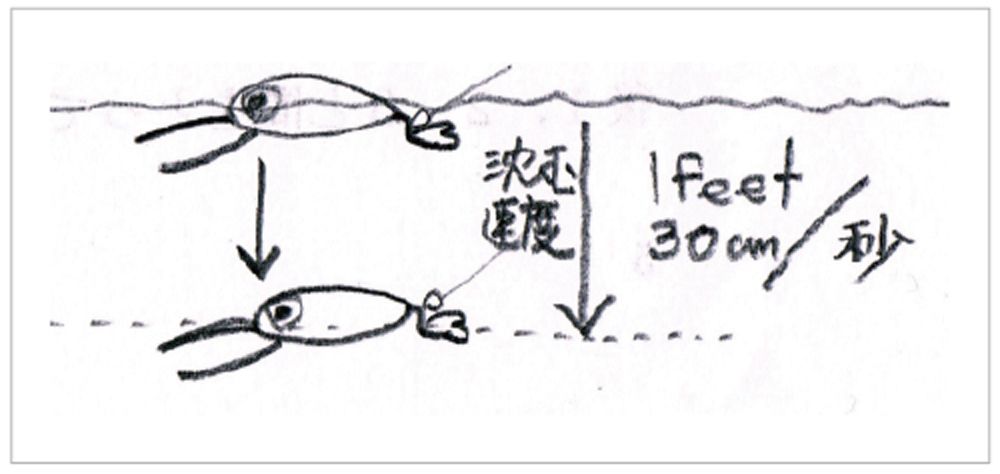 沈む
速度
1feet
30cm/秒